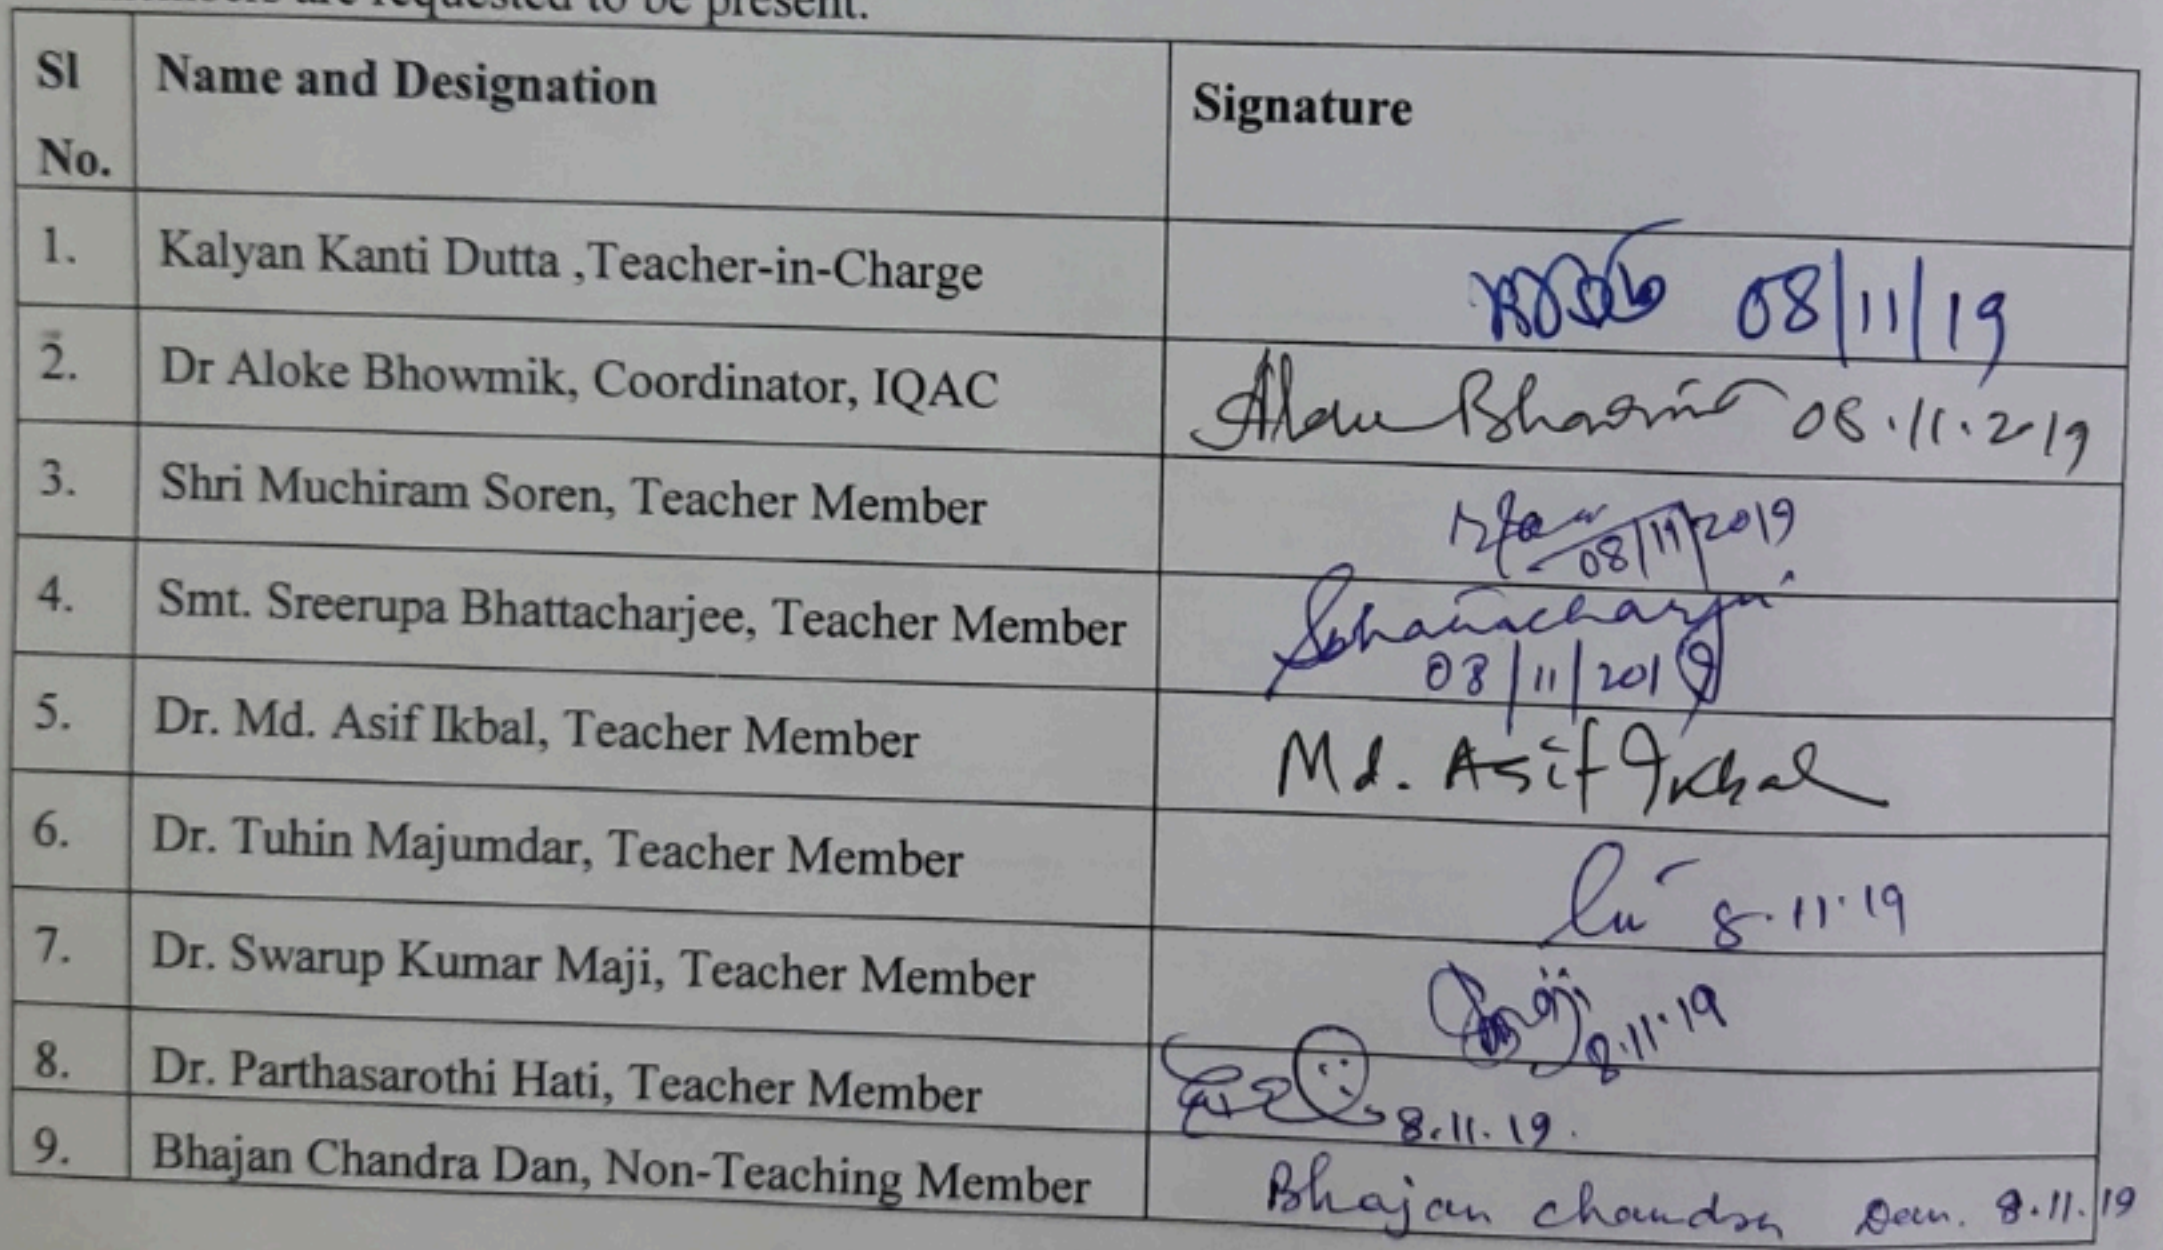 requested to be present.
Sl No. Name and Designation Signature
1. Kalyan Kanti Dutta ,Teacher-in-Charge 08/11/19
2. Dr Aloke Bhowmik, Coordinator, IQAC 08.11.2019
3. Shri Muchiram Soren, Teacher Member 08/11/2019
4. Smt. Sreerupa Bhattacharjee, Teacher Member 08/11/2019
5. Dr. Md. Asif Ikbal, Teacher Member Md. Asif Ikbal
6. Dr. Tuhin Majumdar, Teacher Member 8.11.19
7. Dr. Swarup Kumar Maji, Teacher Member 8.11.19
8. Dr. Parthasarothi Hati, Teacher Member 8.11.19.
9. Bhajan Chandra Dan, Non-Teaching Member Bhajan Chandra Dan. 8.11.19